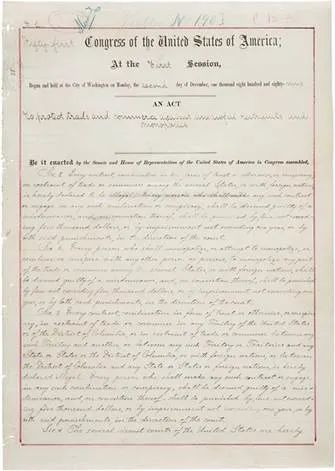 Fifty-first Congress of the United States of America;
At the First Session,
Begun and held at the City of Washington on Monday, the second day of December, one thousand eight hundred and eighty-nine.
AN ACT
To protect trade and commerce against unlawful restraints and
monopolies
Be it enacted by the Senate and House of Representatives of the United States of America in Congress assembled,
Sec. 1. Every contract, combination in the form of trust or otherwise, or conspiracy,
in restraint of trade or commerce among the several States, or with foreign nations,
is hereby declared to be illegal. Every person who shall make any such contract
or engage in any such combination or conspiracy, shall be deemed guilty of a
misdemeanor, and, on conviction thereof, shall be punished by fine not exceed-
ing five thousand dollars, or by imprisonment not exceeding one year, or by
both said punishments, in the discretion of the court.
Sec. 2. Every person who shall monopolize, or attempt to monopolize, or
combine or conspire with any other person or persons, to monopolize any part
of the trade or commerce among the several States, or with foreign nations, shall
be deemed guilty of a misdemeanor, and, on conviction thereof, shall be punished
by fine not exceeding five thousand dollars, or by imprisonment not exceeding one
year, or by both said punishments, in the discretion of the court.
Sec. 3. Every contract, combination in form of trust or otherwise, or conspir-
acy, in restraint of trade or commerce in any Territory of the United States
or of the District of Columbia, or in restraint of trade or commerce between any
such Territory and another, or between any such Territory or Territories and any
State or States or the District of Columbia, or with foreign nations, or between
the District of Columbia and any State or States or foreign nations, is hereby
declared illegal. Every person who shall make any such contract or engage
in any such combination or conspiracy, shall be deemed guilty of a mis-
demeanor, and, on conviction thereof, shall be punished by fine not exceed-
ing five thousand dollars, or by imprisonment not exceeding one year, or by
both said punishments, in the discretion of the court.
Sec. 4. The several circuit courts of the United States are hereby